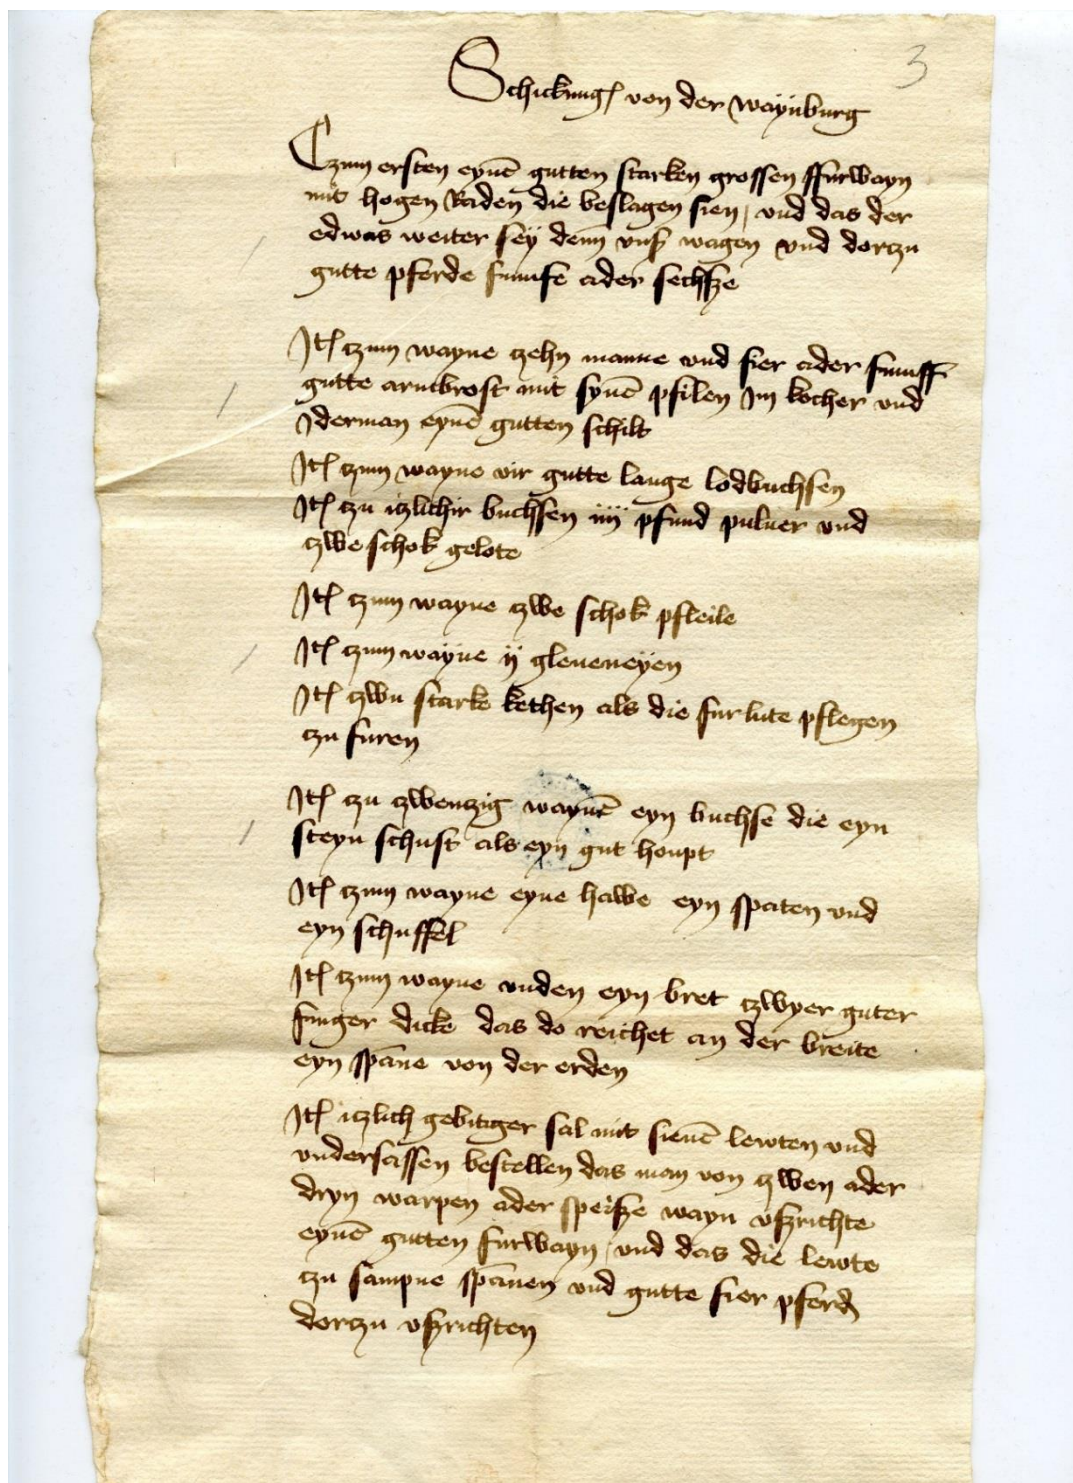 3
Schickung von der waynburg
Czum ersten eynē gutten starken grossen ffurwayn
mit hogen Raden die beslagen sien / vnd das der
edwas weiter sey denn vnß wagen vnd dorczu
gutte pferde fumfe ader sechsze
Itē czum wayne czehn manne vnd fier ader fumff
gutte armbrost mit synē pfilen Im kocher vnd
Iderman eynē gutten schilt
Itē czum wayne vir gutte lange lodbuchsen
Itē czu iczlichir buchsen iiij pfund puluer vnd
czwe schok gelote
Itē czum wayne czwe schok pfleile
Itē czum wayne ij gleueneyen
Itē czwu starke kethen als die furlute pflegen
czu furen
Itē czu czwenczig waynē eyn buchse die eyn
steyn schust als eyn gut houpt
Itē czum wayne eyne hawe eyn spaten vnd
eyn schuffel
Itē czum wayne vnden eyn bret czwyer guter
finger dicke das do reichet an der breite
eyn spāne von der erden
Itē iczlich gebitiger sal mit sienē lewten vnd
vndersassen bestellen das man von czwen ader
dryn warpen ader speisze wayn vszrichte
eynē gutten furwayn / vnd das die lewte
czu sampne spānen vnd gutte fier pferde
dorczu vszrichten